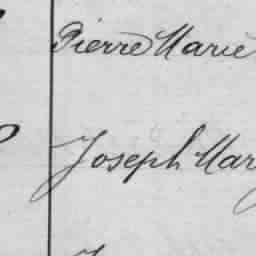 Pierre Marie
Joseph Mar